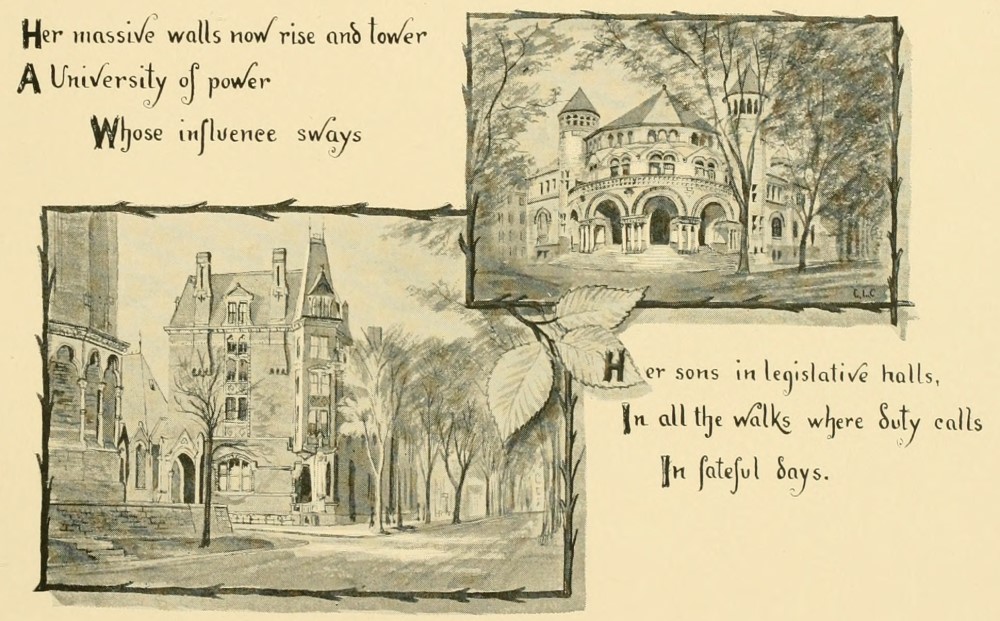 Her massive walls now rise and tower
A University of power
Whose influence sways
C.L.C
Her sons in legislative halls,
In all the walks where duty calls
In fateful days.